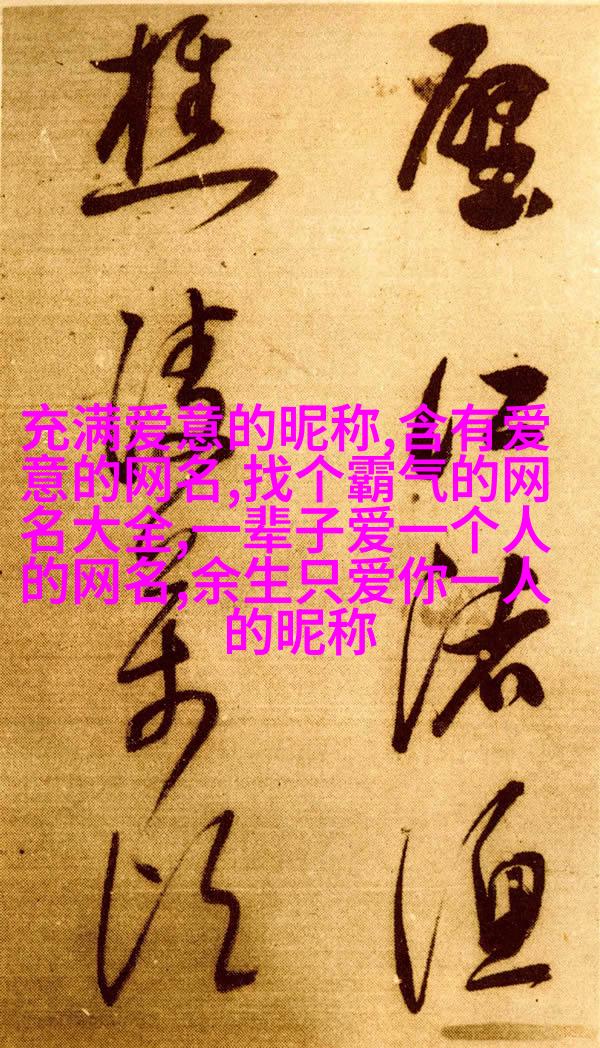 充满爱意的昵称,含有爱
意的网名,找个霸气的网
名大全,一辈子爱一个人
的网名,余生只爱你一人
的昵称
江渚渔
樵